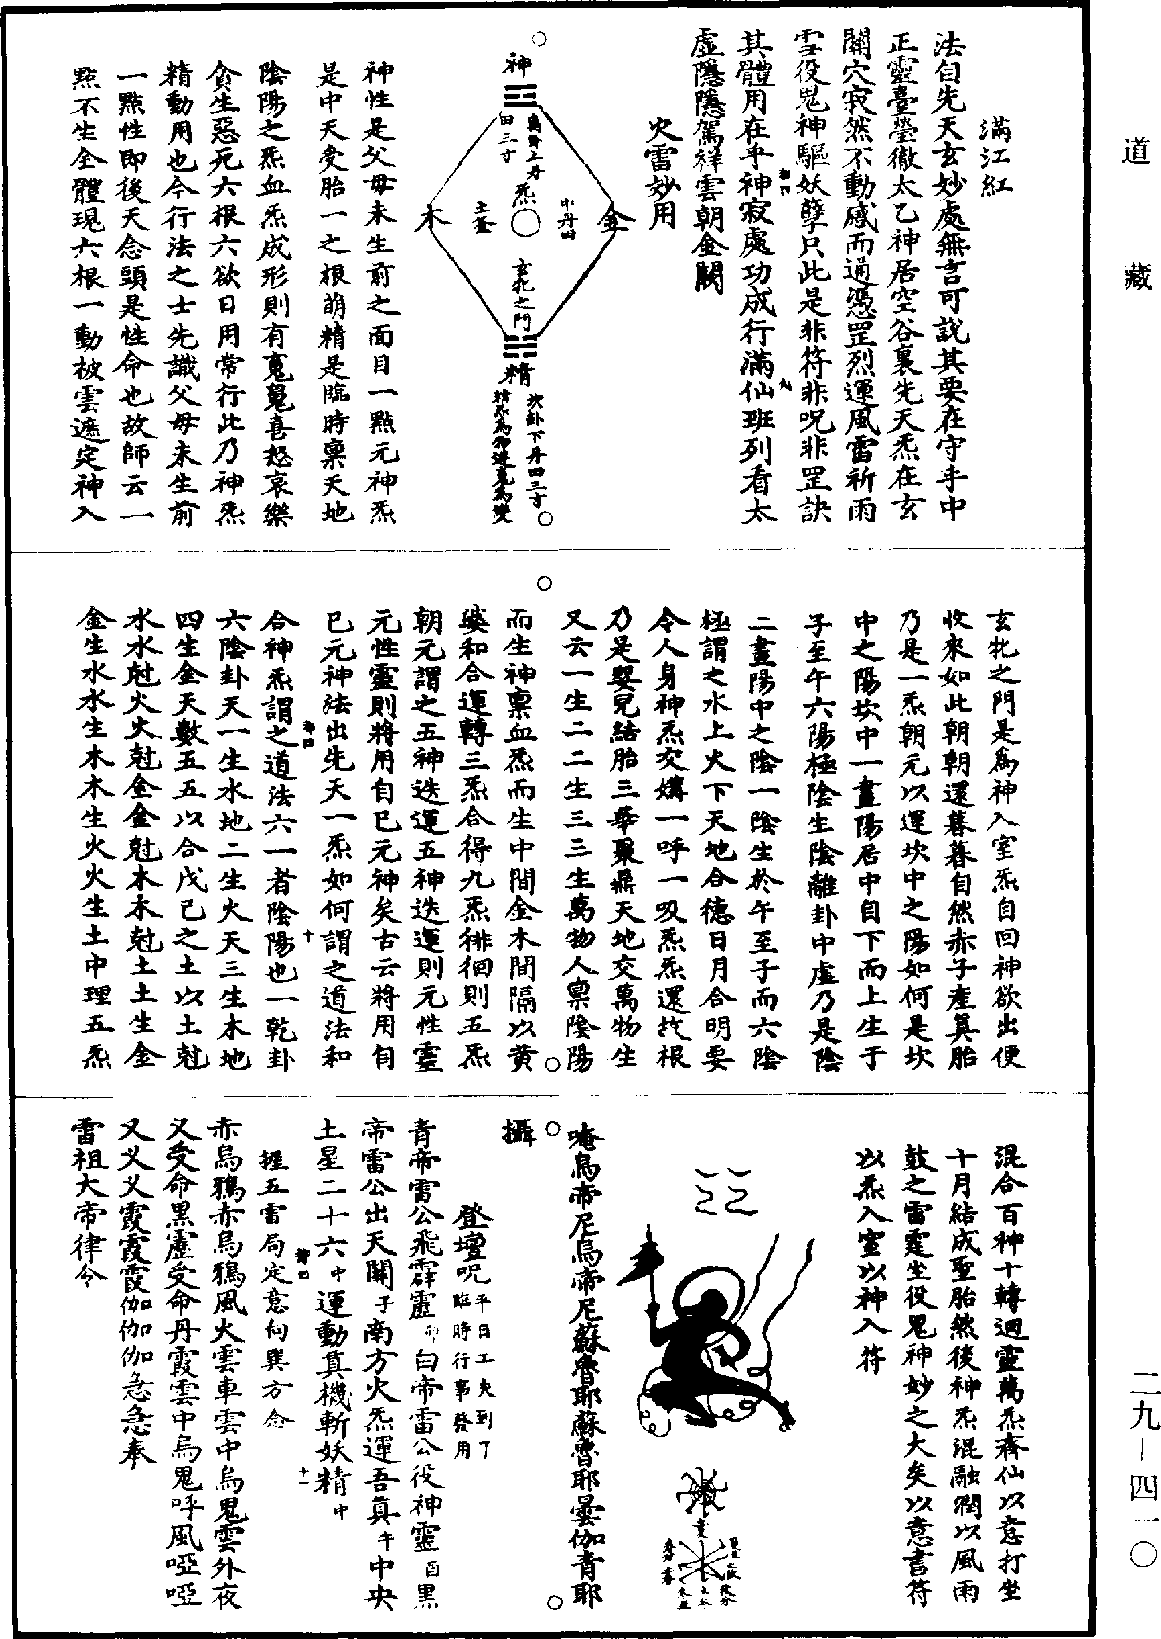 道藏
二九—四一〇
滿江紅
法自先天玄妙處無言可說其要在守乎中
正靈臺瑩徹太乙神居空谷裏先天炁在玄
關穴寂然不動感而通憑罡烈運風雷祈雨
雪役鬼神驅妖孽只此是非符非呪非罡訣
其體用在乎神寂處功成行滿仙班列看太
虛隱隱駕祥雲朝金闕
火雷妙用
神
離卦上丹
田三寸
炁
中丹田
土釜
金
木
玄牝之門
精
坎卦下丹田三寸
神性是父母未生前之面目一點元神炁
是中天受胎一之根萌精是臨時稟天地
陰陽之炁血炁成形則有䰟魄喜怒哀樂
貪生惡死六根六欲日用常行此乃神炁
精動用也今行法之士先識父母未生前
一點性即後天念頭是性命也故師云一
點不生全體現六根一動被雲遮定神入
玄牝之門是爲神入室炁自回神欲出便
收來如此朝朝還暮暮自然赤子產眞胎
乃是一炁朝元以運坎中之陽如何是坎
中之陽坎中一畫陽居中自下而上生于
子至午六陽極陰生陰離卦中虛乃是陰
二畫陽中之陰一陰生於午至子而六陰
極謂之水上火下天地合德日月合明要
令人身神炁交媾一呼一吸炁炁還故根
乃是嬰兒結胎三華聚鼎天地交萬物生
又云一生二二生三三生萬物人稟陰陽
而生神稟血炁而生中間金木間隔以黃
婆和合運轉三炁合得九炁徘徊則五炁
朝元謂之五神迭運五神迭運則元性靈
元性靈則將用自己元神矣古云將用自
己元神法出先天一炁如何謂之道法和
合神炁謂之道法六一者陰陽也一乾卦
六陰卦天一生水地二生火天三生木地
四生金天數五五以合戊己之土以土尅
水水尅火火尅金金尅木木尅土土生金
金生水水生木木生火火生土中理五炁
混合百神十轉迴靈萬炁齊仙以意打坐
十月結成聖胎然後神炁混融潤以風雨
鼓之雷霆坐役鬼神妙之大矣以意書符
以炁入室以神入符
唵烏帝尼烏帝尼蘇魯耶蘇魯耶曇伽青耶
攝
登壇呪平日工夫到了
臨時行事發用
青帝雷公飛霹靂卯白帝雷公役神靈酉黑
帝雷公出天關子南方火炁運吾眞午中央
土星二十六中運動眞機斬妖精中
握五雷局定意向巽方念
赤烏鴉赤烏鴉風火雲車雲中烏鬼雲外夜
叉受命黑靂受命丹霞雲中烏鬼呼風啞啞
叉叉叉霞霞霞伽伽伽急急奉
雷祖大帝律令